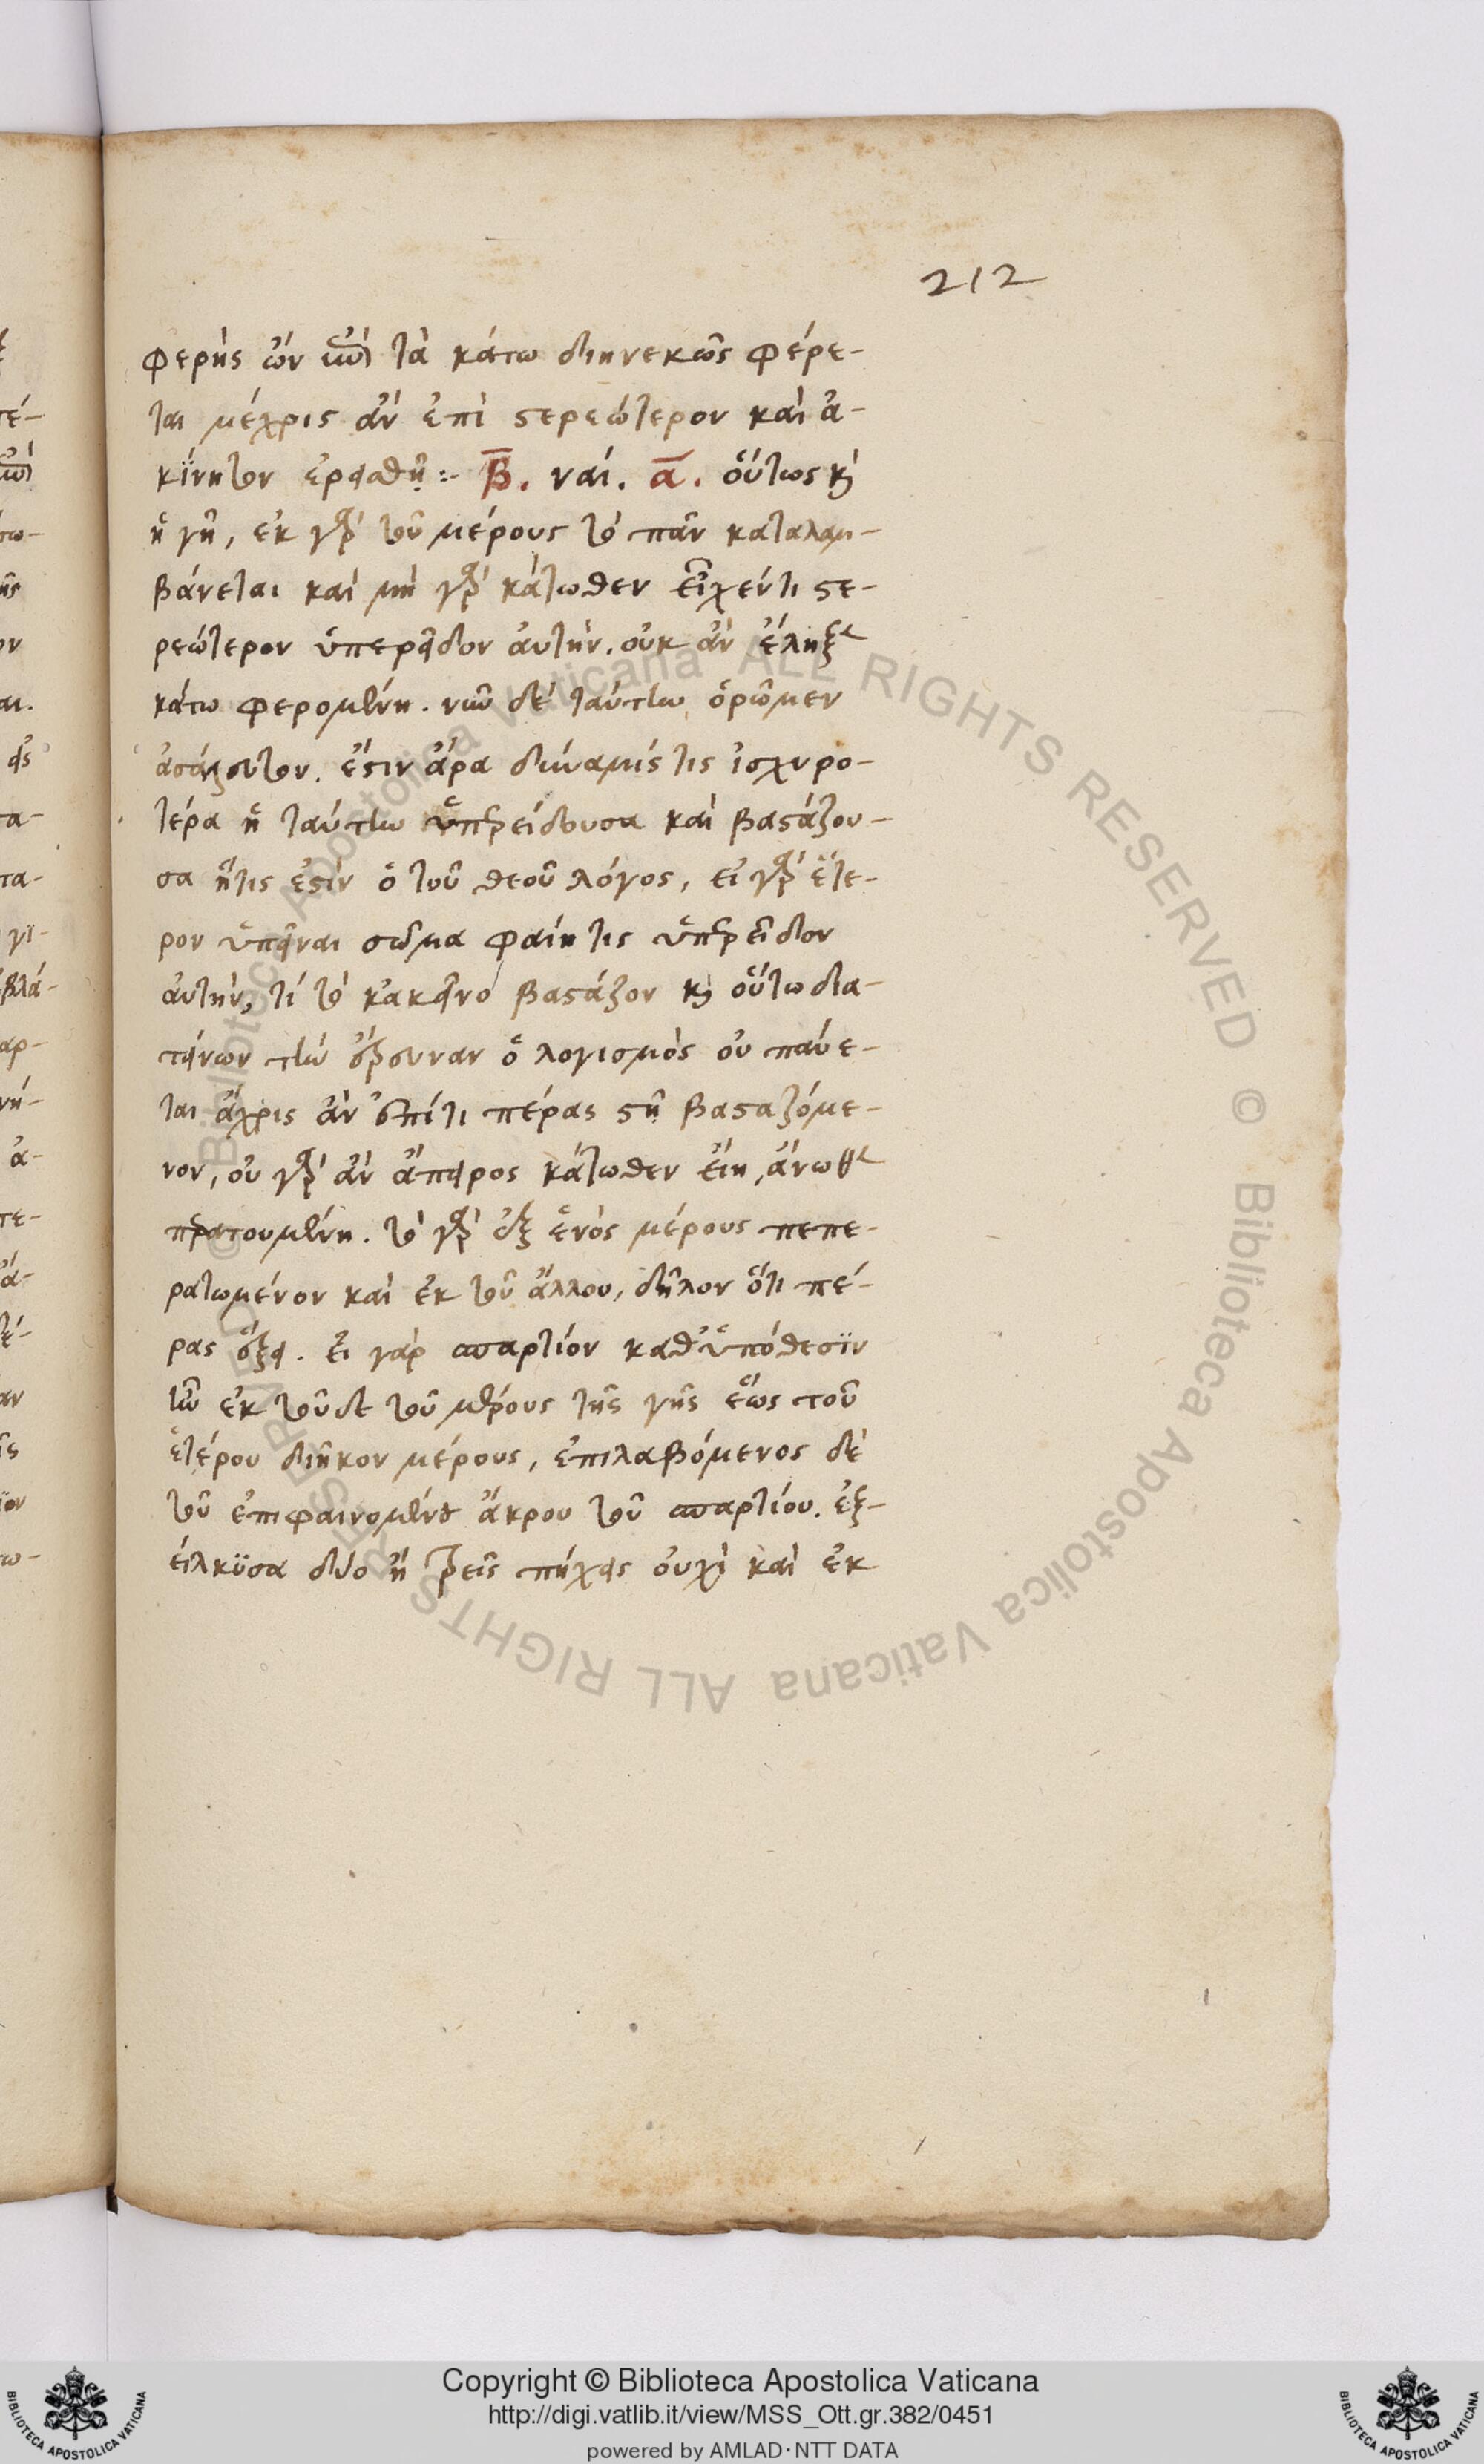 212
φερὴς ὢν ἐπὶ τὰ κάτω διηνεκῶς φέρε-
ται μέχρις ἂν ἐπὶ στερεώτερον καὶ ἀ-
κίνητον ἐρεισθῇ :- Β. ναί. α. οὕτως καὶ
ἡ γῆ, ἐκ γὰρ τοῦ μέρους τὸ πᾶν καταλαμ-
βάνεται καὶ μὴ γὰρ κάτωθεν εἶχέν τι στε-
ρεώτερον ὑπερεῖδον αὐτήν. οὐκ ἂν ἔληξε
κάτω φερομένη. νῦν δὲ ταύτην ὁρῶμεν
ἀσάλευτον. ἔστιν ἄρα δύναμίς τις ἰσχυρο-
τέρα ἡ ταύτην ὑπερείδουσα καὶ βαστάζου-
σα ἥτις ἐστὶν ὁ τοῦ θεοῦ λόγος, εἰ γὰρ ἕτε-
ρον ὑπεῖναι σῶμα φαίη τις ὑπερεῖδον
αὐτήν, τί τὸ κἀκεῖνο βαστάζον καὶ οὕτω δια-
τείνων τὴν ἔρευναν ὁ λογισμὸς οὐ παύε-
ται ἄχρις ἂν ἐπί τι πέρας στῇ βασταζόμε-
νον, οὐ γὰρ ἂν ἄπειρος κάτωθεν εἴη, ἄνωθεν
περατουμένη. τὸ γὰρ ἐξ ἑνὸς μέρους πεπε-
ρατωμένον καὶ ἐκ τοῦ ἄλλου, δῆλον ὅτι πέ-
ρας ἕξει. εἰ γὰρ σπαρτίον καθ' ὑπόθεσϊν
ἦν ἐκ τοῦδε τοῦ μέρους τῆς γῆς ἕως τοῦ
ἑτέρου διῆκον μέρους, ἐπιλαβόμενος δὲ
τοῦ ἐπιφαινομένου ἄκρου τοῦ σπαρτίου. ἐξ-
είλκϋσα δύο ἢ τρεῖς πήχεις οὐχὶ καὶ ἐκ
Copyright © Biblioteca Apostolica Vaticana
http://digi.vatlib.it/view/MSS_Ott.gr.382/0451
powered by AMLAD·NTT DATA